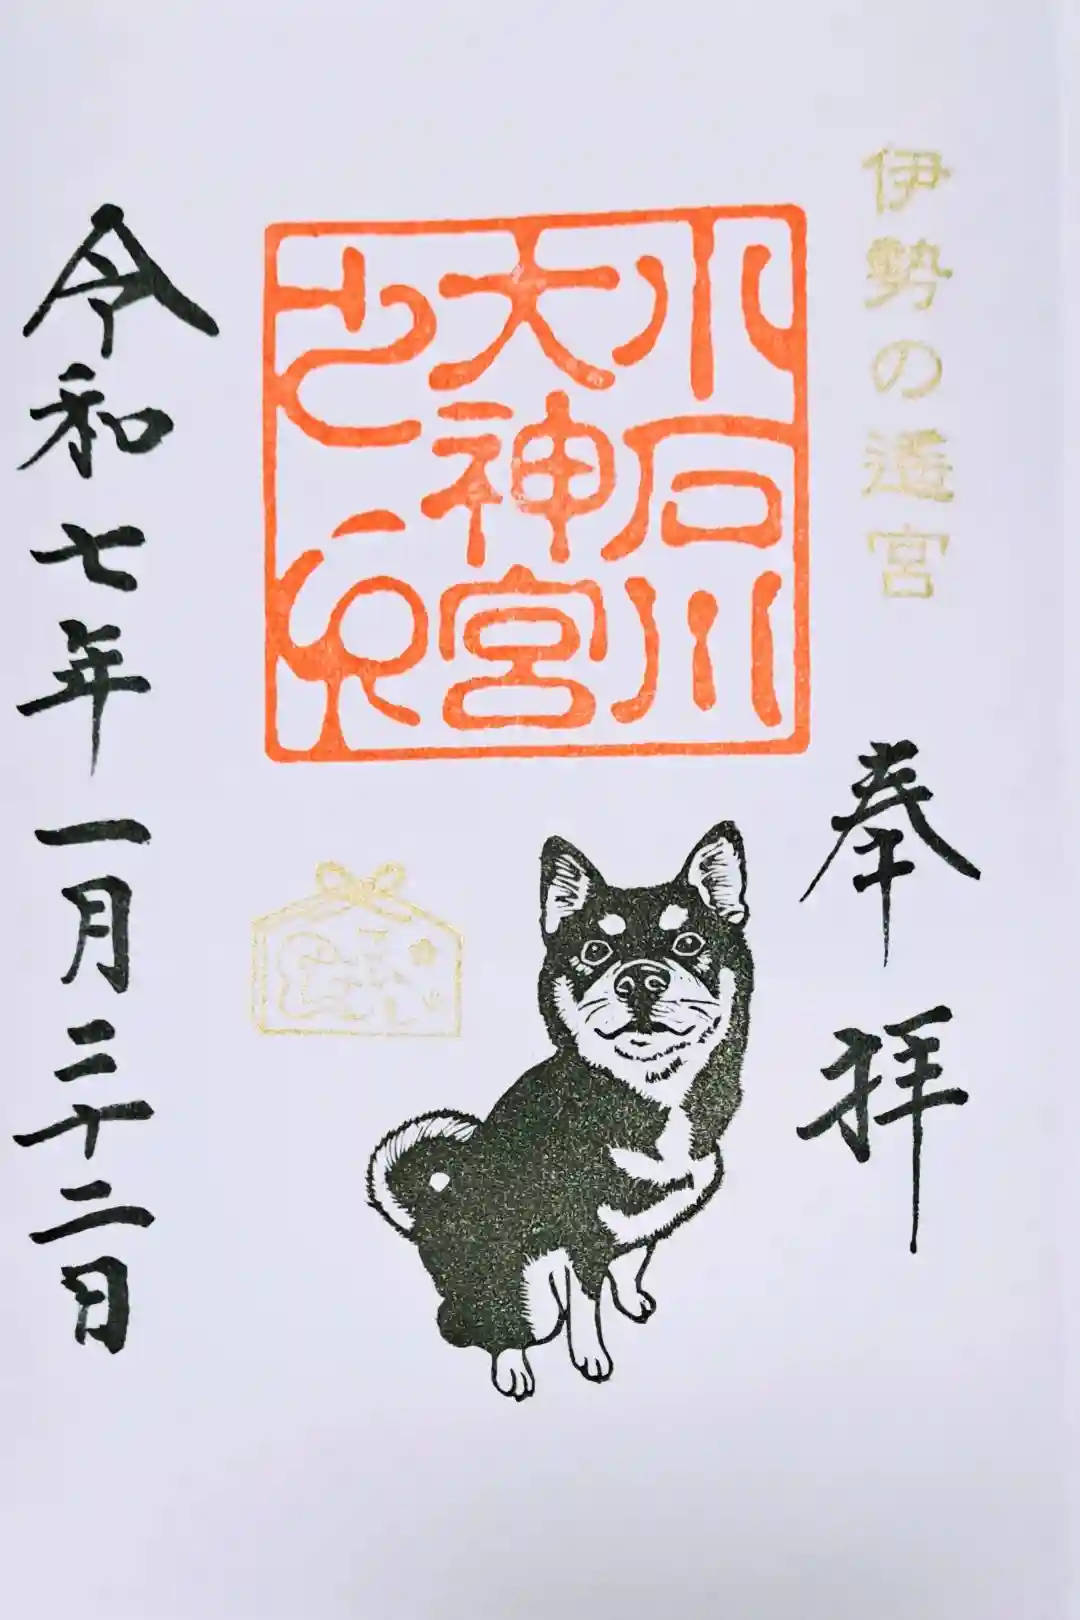 伊勢の遙宮
奉拝
小石川
大神宮
之印
令和七年一月二十二日